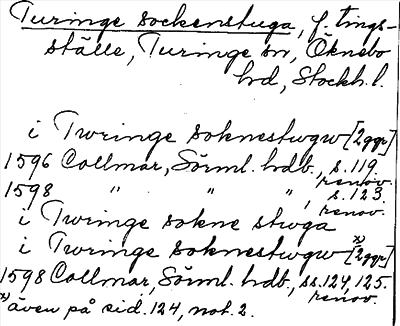 Turinge sockenstuga, f. tings-
ställe, Turinge sn, Öknebo
hd, Stockh. l.
i Twringe soknestwgw [2 ggr]
1596 Collmar, Sörml. hdb., s. 119.
renov.
1598 " " ", s. 123.
renov.
i Twringe sokne stwga
i Twringe soknestwgw x) [2 ggr]
1598 Collmar, Sörml. hdb., ss. 124, 125.
renov.
x) även på sid. 124, not. 2.